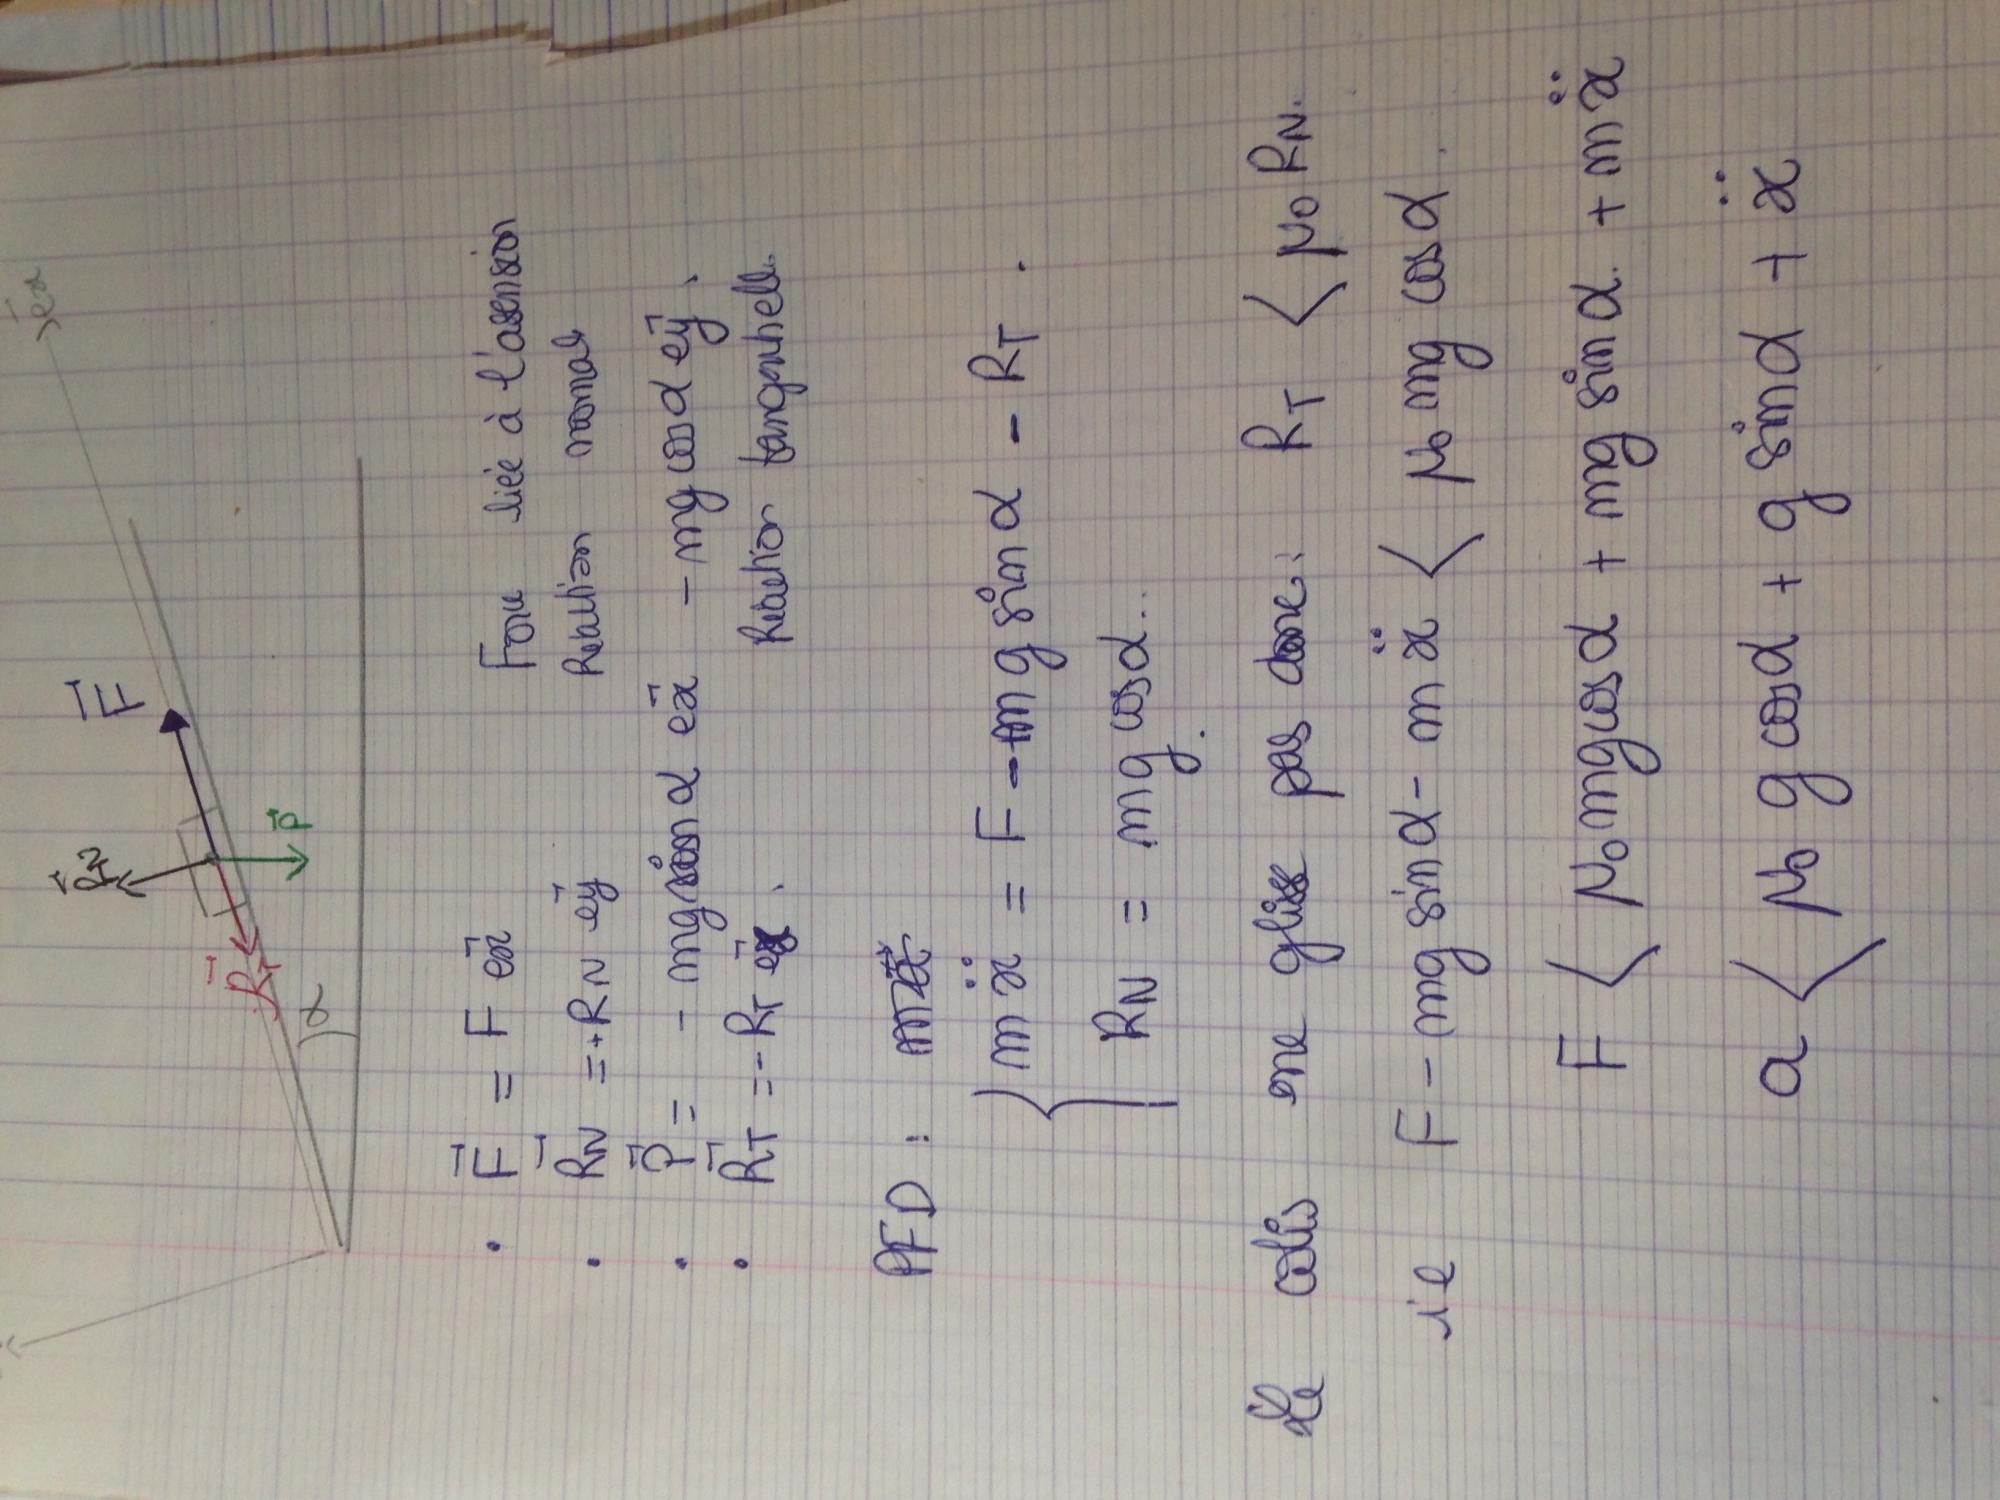 ex
F
R_N
P
R_T
α
• F = F ex Force liée à l'ascension
• R_N = + R_N ey Réaction normale
• P = - mg sin α ex - mg cos α ey.
• R_T = - R_T ex. Réaction tangentielle.
PFD :
m ẍ = F - mg sin α - R_T.
R_N = mg cos α.
Le colis ne glisse pas donc: R_T < μ₀ R_N.
ie F - mg sin α - m ẍ < μ₀ mg cos α.
F < μ₀ mg cos α + mg sin α. + m ẍ
a < μ₀ g cos α + g sin α + ẍ